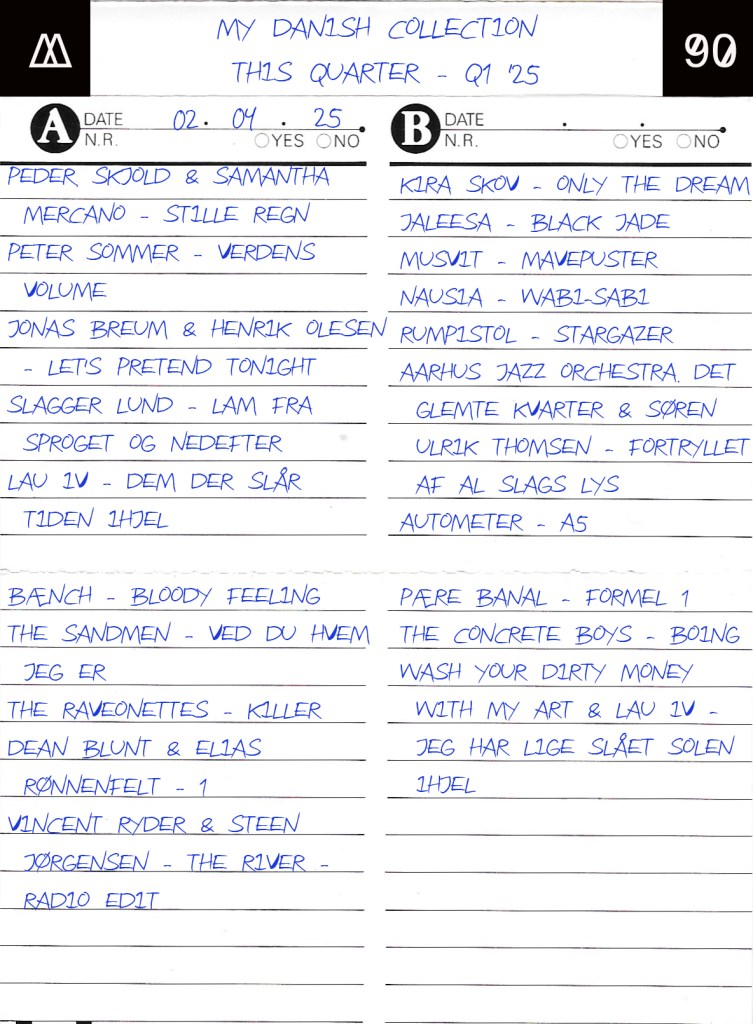 MY DANISH COLLECTION
THIS QUARTER - Q1 '25
90
A DATE 02. 04. 25
N.R. YES NO
PEDER SKJOLD & SAMANTHA
MERCANO - STILLE REGN
PETER SOMMER - VERDENS
VOLUME
JONAS BREUM & HENRIK OLESEN
- LET'S PRETEND TONIGHT
SLAGGER LUND - LAM FRA
SPROGET OG NEDEFTER
LAU IV - DEM DER SLÅR
TIDEN IHJEL
BÆNCH - BLOODY FEELING
THE SANDMEN - VED DU HVEM
JEG ER
THE RAVEONETTES - KILLER
DEAN BLUNT & ELIAS
RØNNENFELT - 1
VINCENT RYDER & STEEN
JØRGENSEN - THE RIVER -
RADIO EDIT
B DATE . .
N.R. YES NO
KIRA SKOV - ONLY THE DREAM
JALEESA - BLACK JADE
MUSVIT - MAVEPUSTER
NAUSIA - WABI-SABI
RUMPISTOL - STARGAZER
AARHUS JAZZ ORCHESTRA, DET
GLEMTE KVARTER & SØREN
ULRIK THOMSEN - FORTRYLLET
AF AL SLAGS LYS
AUTOMETER - A5
PÆRE BANAL - FORMEL 1
THE CONCRETE BOYS - BOING
WASH YOUR DIRTY MONEY
WITH MY ART & LAU IV -
JEG HAR LIGE SLÅET SOLEN
IHJEL